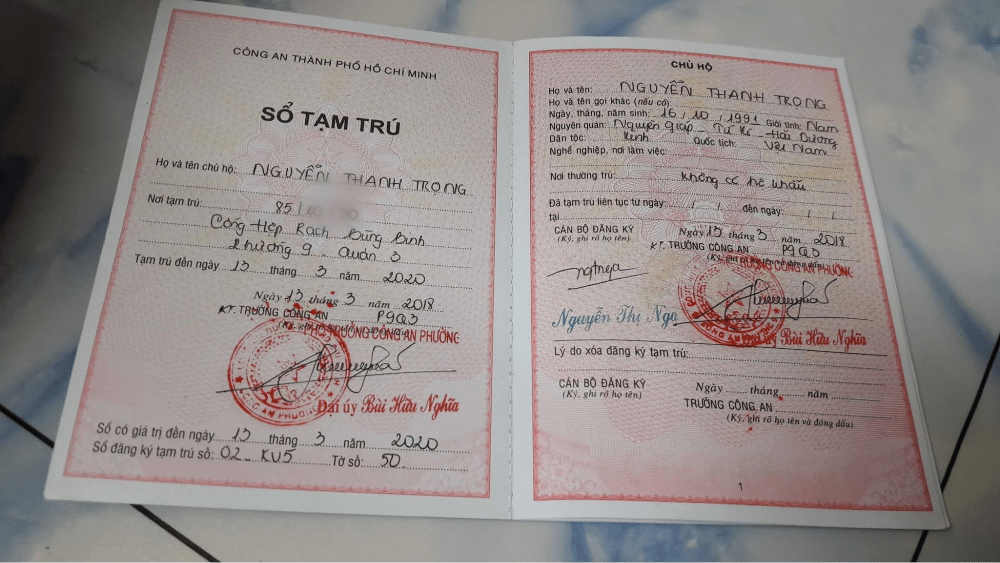 CÔNG AN THÀNH PHỐ HỒ CHÍ MINH
SỔ TẠM TRÚ
Họ và tên chủ hộ: NGUYỄN THANH TRỌNG
Nơi tạm trú: 85/
Cống Hộp Rạch Bùng Binh
Phường 9 Quận 3
Tạm trú đến ngày 13 tháng 3 năm 2020
Ngày 13 tháng 3 năm 2018
KT. TRƯỞNG CÔNG AN P9Q3
PHÓ TRƯỞNG CÔNG AN PHƯỜNG
Đại úy Bùi Hữu Nghĩa
Sổ có giá trị đến ngày 13 tháng 3 năm 2020
Số đăng ký tạm trú số: 02_KV5 Tờ số: 50
CHỦ HỘ
Họ và tên: NGUYỄN THANH TRỌNG
Họ và tên gọi khác (nếu có):
Ngày, tháng, năm sinh: 16/10/1991 Giới tính: Nam
Nguyên quán: Nguyên Giáp - Tứ Kì - Hải Dương
Dân tộc: Kinh Quốc tịch: Việt Nam
Nghề nghiệp, nơi làm việc:
Nơi thường trú: Không có hộ khẩu
Đã tạm trú liên tục từ ngày: / / đến ngày: / /
tại
CÁN BỘ ĐĂNG KÝ Ngày 13 tháng 3 năm 2018
(Ký, ghi rõ họ tên) KT. TRƯỞNG CÔNG AN P9Q3
TRƯỞNG CÔNG AN PHƯỜNG
Nguyễn Thị Nga Bùi Hữu Nghĩa
Lý do xóa đăng ký tạm trú:
CÁN BỘ ĐĂNG KÝ Ngày tháng năm
(Ký, ghi rõ họ tên) TRƯỞNG CÔNG AN
(Ký, ghi rõ họ tên và đóng dấu)
1